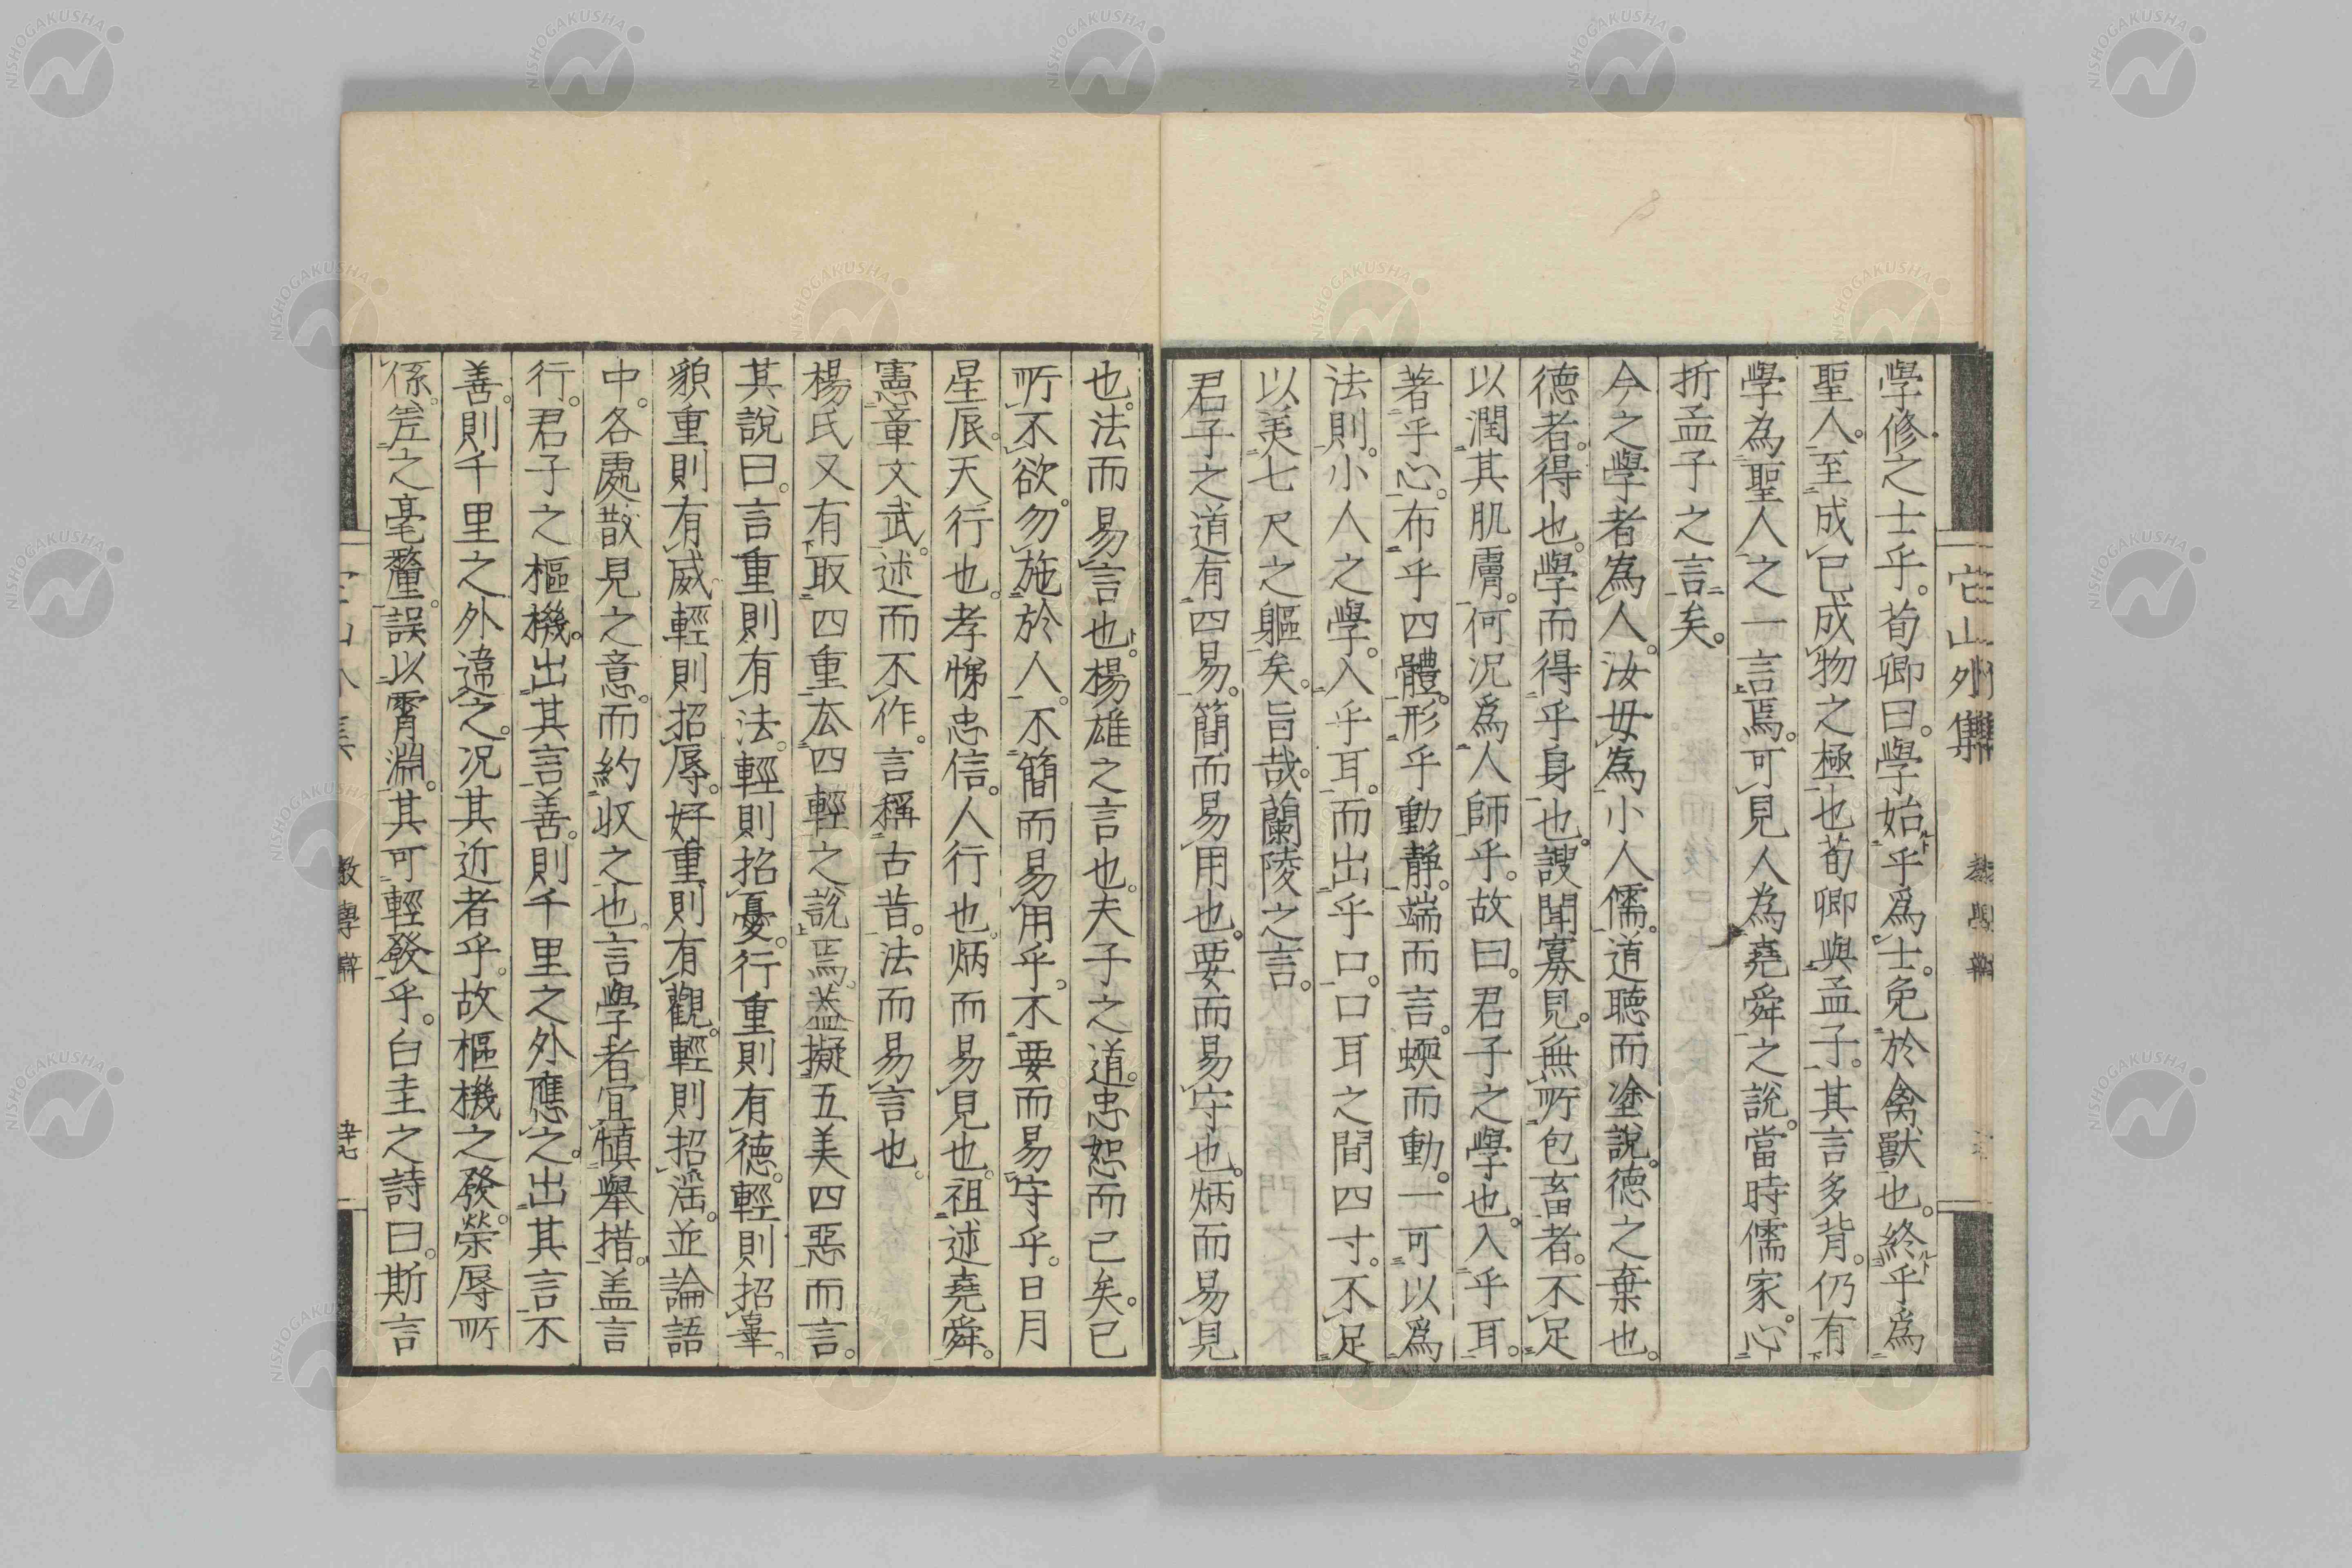 它山外集
學修之士乎。荀卿曰。學始乎爲士。免於禽獸也。終乎爲
聖人。至成已成物之極也荀卿與孟子。其言多背。仍有
學為聖人之一言焉。可見人為堯舜之說。當時儒家。心
折孟子之言矣。
今之學者為人。汝毋為小人儒。道聴而塗說。德之棄也。
德者。得也。學而得乎身也。謏聞寡見。無所包畜者。不足
以潤其肌膚。何况爲人師乎。故曰。君子之學也。入乎耳。
著乎心。布乎四體。形乎動靜。端而言。蝡而動。一可以爲
法則。小人之學。入乎耳。而出乎口。口耳之間四寸。不足
以美七尺之軀矣。旨哉。蘭陵之言。
君子之道有四易。簡而易用也。要而易守也。炳而易見
也。法而易言也。楊雄之言也。夫子之道。忠恕而已矣。已
所不欲。勿施於人。不簡而易用乎。不要而易守乎。日月
星辰。天行也。孝悌忠信。人行也。炳而易見也。祖述堯舜。
憲章文武。述而不作。言稱古昔。法而易言也。
楊氏又有取四重去四輕之說焉。蓋擬五美四惡而言。
其說曰。言重則有法。輕則招憂。行重則有德。輕則招辜。
貌重則有威。輕則招辱。好重則有觀。輕則招滛。並論語
中。各處散見之意。而約收之也。言學者宜慎舉措。盖言
行。君子之樞機。出其言善。則千里之外應之。出其言不
善。則千里之外違之。况其近者乎。故樞機之發。榮辱所
係。差之毫釐。誤以霄淵。其可輕發乎。白圭之詩曰。斯言